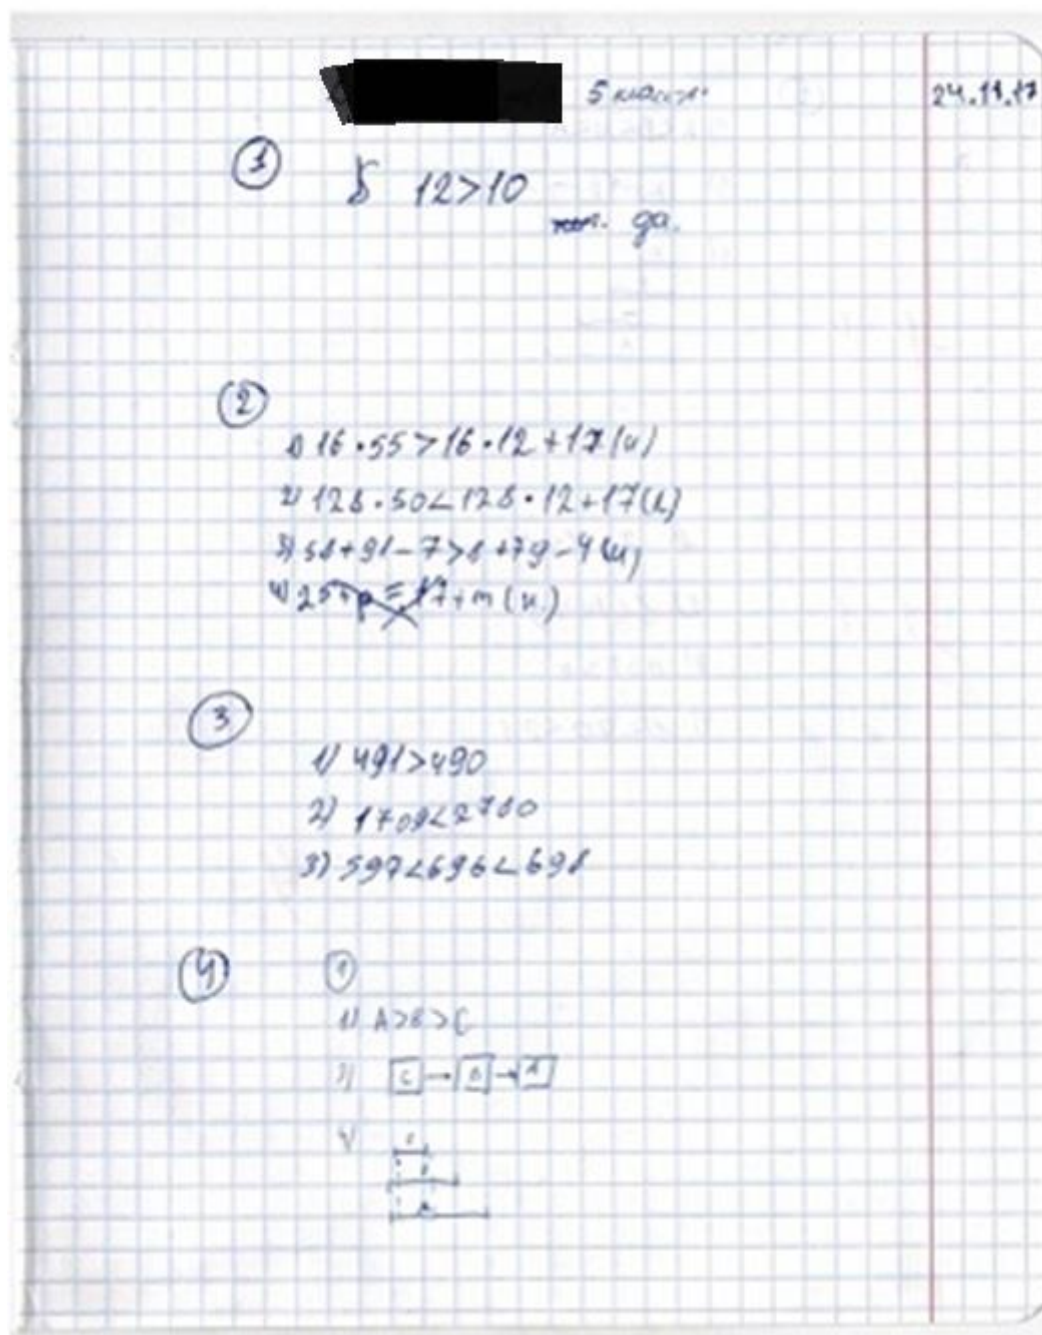 5 класс
24.11.17
1
12>10
да.
2
1) 16·55>16·12+17(и)
2) 128·50<128·12+17(л)
3) 58+91-7>8+79-4(и)
4) 25+p=17+m(и)
3
1) 491>490
2) 1709<2700
3) 597<696<698
4 1
1) A>B>C
3) C→B→A